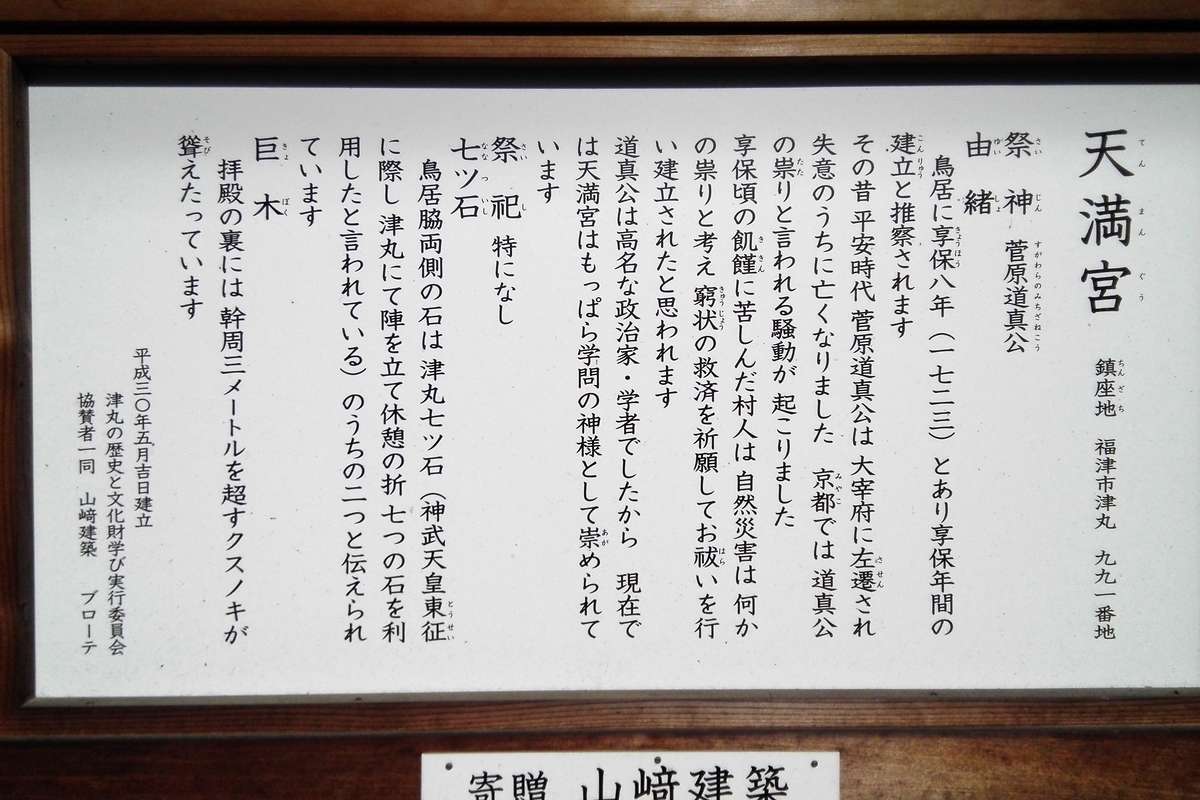 天満宮 鎮座地 福津市津丸 九九一番地
てんまんぐう ちんざち
祭神 菅原道真公
さいじん すがわらのみちざねこう
由緒
ゆいしょ
鳥居に享保八年（一七二三）とあり享保年間の
きょうほう
建立と推察されます
こんりゅう
その昔 平安時代 菅原道真公は 大宰府に左遷され
させん
失意のうちに亡くなりました 京都では 道真公
みやこ
の祟りと言われる騒動が 起こりました
たた
享保頃の飢饉に苦しんだ村人は 自然災害は 何か
ききん
の祟りと考え 窮状の救済を祈願してお祓いを行
きゅうじょう はら
い建立されたと思われます
道真公は高名な政治家・学者でしたから 現在で
は天満宮はもっぱら学問の神様として崇められて
あが
います
祭祀 特になし
さいし
七ツ石
ななついし
鳥居脇両側の石は 津丸七ツ石（神武天皇東征
とうせい
に際し 津丸にて陣を立て休憩の折 七つの石を利
用したと言われている）のうちの二つと伝えられ
ています
巨木
きょぼく
拝殿の裏には 幹周三メートルを超すクスノキが
聳えたっています
そび
平成三〇年五月吉日建立
津丸の歴史と文化財学び実行委員会
協賛者一同 山﨑建築 ブローテ
寄贈 山﨑建築